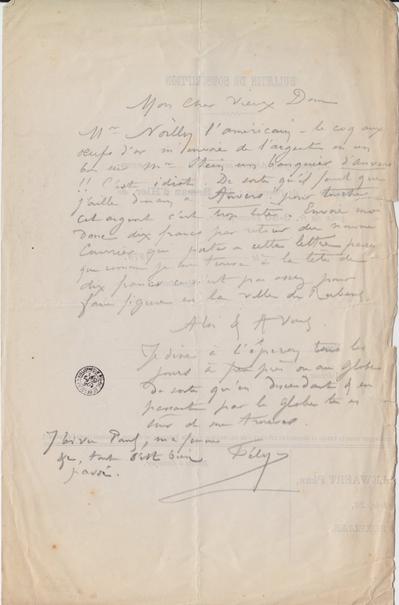 Mon cher vieux Dom
Mr Noilly l'américain – le coq aux
œufs d'or m'envoie de l'argent en un
bon sur Mr Stein un banquier d'Anvers
!! C'est idiot. De sorte qu'il faut que
j'aille demain à Anvers pour toucher
cet argent c'est trop bête. Envoie moi
donc dix francs par retour du même
courrier qui porte cette lettre parce
que comme je me trouve à la tête de
dix francs ce n'est pas assez pour
faire figure en la ville de Rubens.
A toi & A Vous
Je dîne à l'éperon tous les
jours à peu près ou au globe
de sorte qu'en descendant & en
passant par le globe tu es
sûr de me trouver.
Paul, ma femme
&c, tout est bien
Fély
BULLETIN DE SOUSCRIPTION